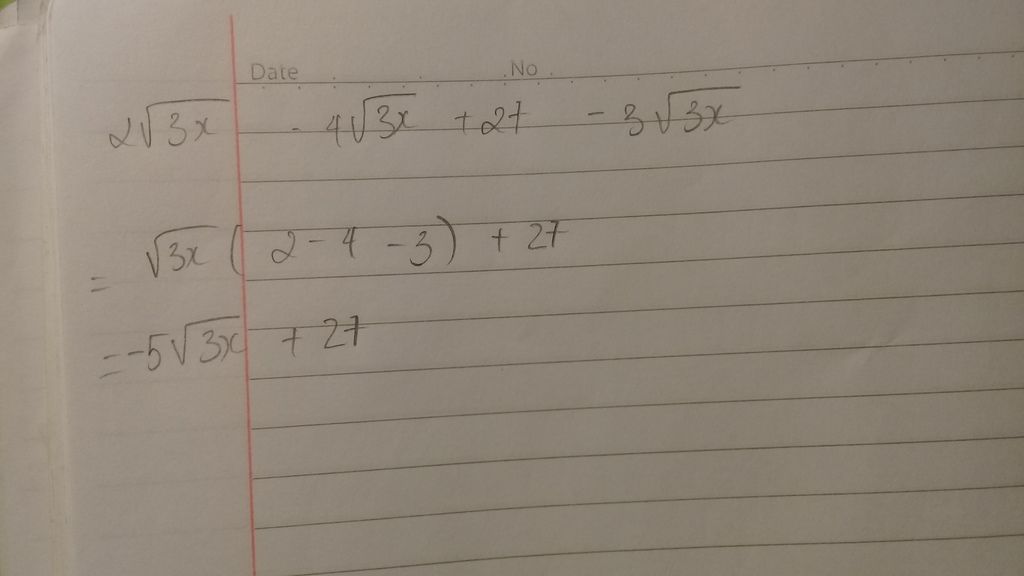 Date No
2√3x - 4√3x + 27 - 3√3x
= √3x ( 2 - 4 - 3 ) + 27
= -5√3x + 27